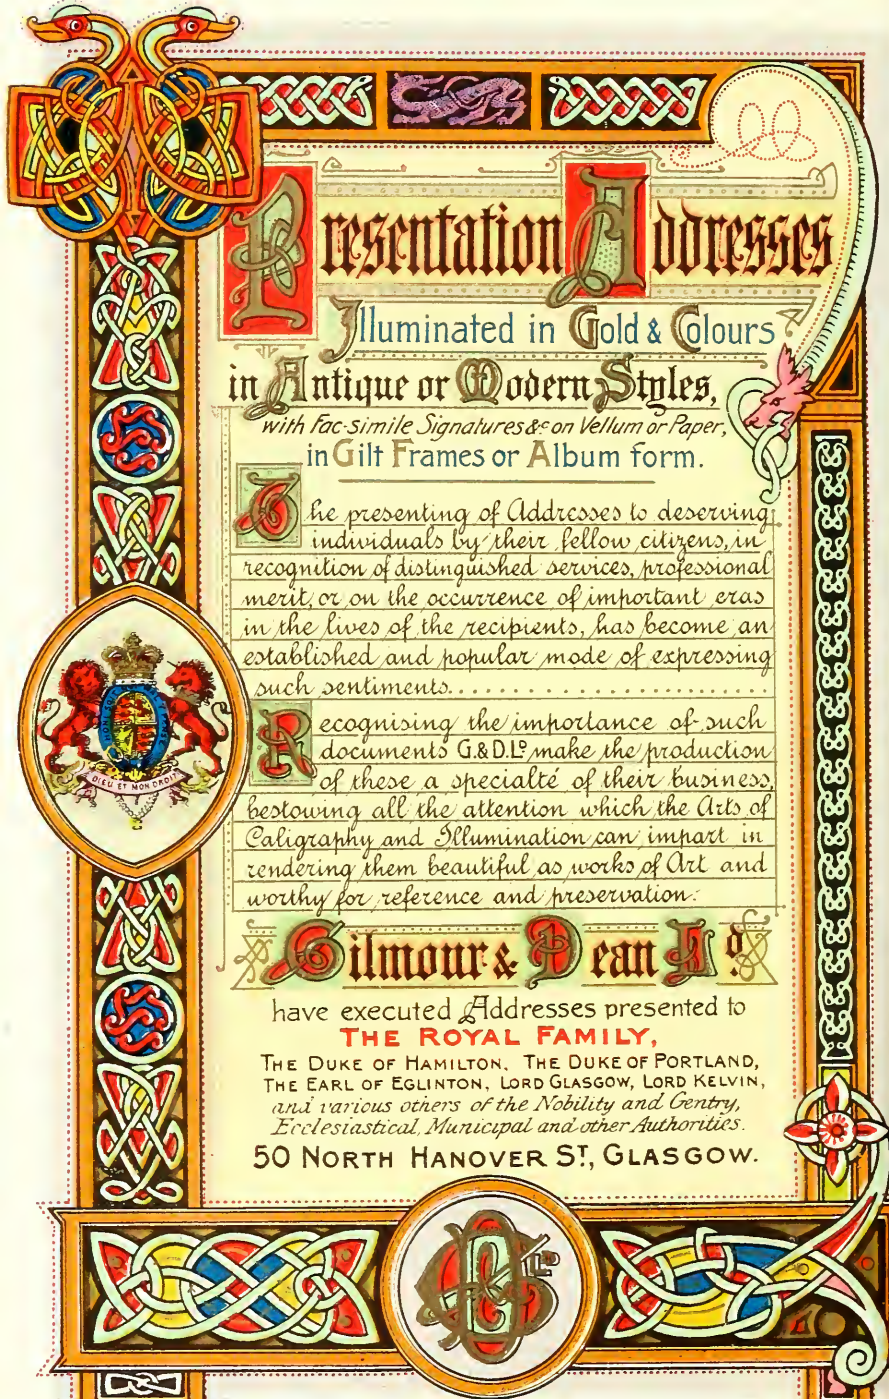 Presentation Addresses
Illuminated in Gold & Colours
in Antique or Modern Styles,
with Fac-simile Signatures &c on Vellum or Paper,
in Gilt Frames or Album form.
The presenting of Addresses to deserving
individuals by their fellow citizens, in
recognition of distinguished services, professional
merit, or on the occurrence of important eras
in the lives of the recipients, has become an
established and popular mode of expressing
such sentiments. . . . . . . . . . . . . . . . . . . . . . . .
Recognising the importance of such
documents G. & D. Lº. make the production
of these a specialté of their business,
bestowing all the attention which the Arts of
Caligraphy and Illumination can impart in
rendering them beautiful as works of Art and
worthy for reference and preservation.
Gilmour & Dean Ld.
have executed Addresses presented to
THE ROYAL FAMILY,
THE DUKE OF HAMILTON, THE DUKE OF PORTLAND,
THE EARL OF EGLINTON, LORD GLASGOW, LORD KELVIN,
and various others of the Nobility and Gentry,
Ecclesiastical, Municipal and other Authorities.
50 NORTH HANOVER ST., GLASGOW.
DIEU ET MON DROIT
GD LD